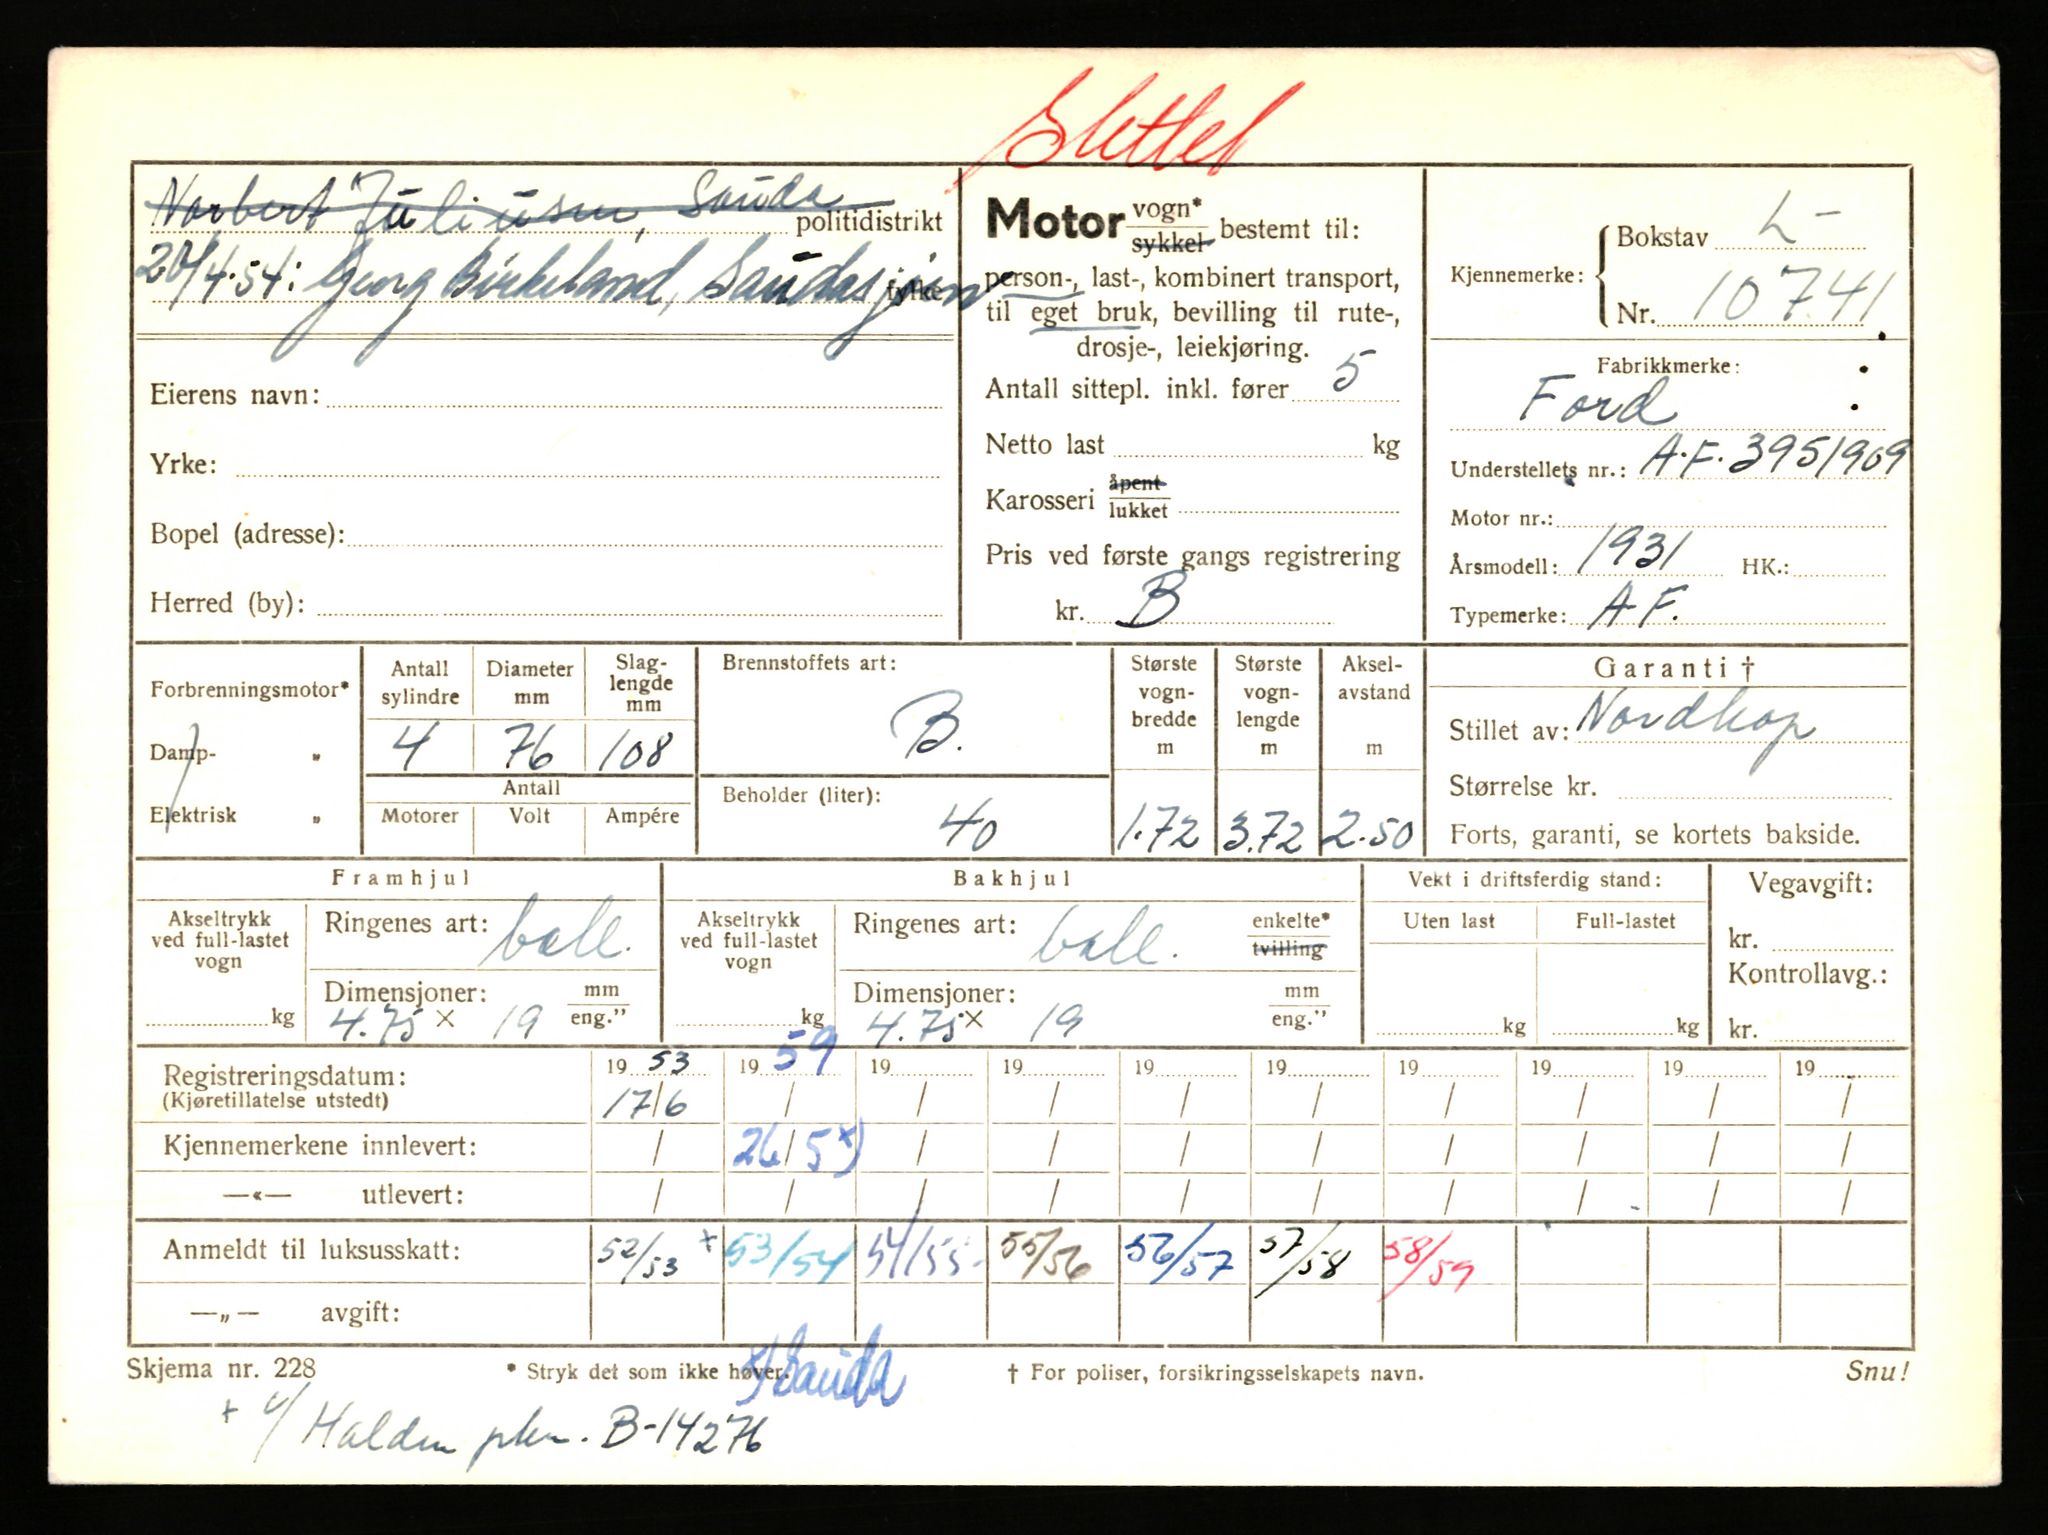 Slettet
Norbert Juliusen, Sauda politidistrikt
20/4.54: Georg Birkeland, Saudasjøen fylke
Eierens navn:
Yrke:
Bopel (adresse):
Herred (by):
Motor vogn* sykkel bestemt til:
person-, last-, kombinert transport,
til eget bruk, bevilling til rute-,
drosje-, leiekjøring.
Antall sittepl. inkl. fører 5
Netto last kg
Karosseri åpent lukket
Pris ved første gangs registrering
kr. B
Kjennemerke: Bokstav L-
Nr. 10741
Fabrikkmerke:
Ford
Understellets nr.: A.F. 3951909
Motor nr.:
Årsmodell: 1931 HK.:
Typemerke: A.F.
Forbrenningsmotor*
Damp- „
Elektrisk „
Antall sylindre 4
Diameter mm 76
Slag-lengde mm 108
Antall
Motorer Volt Ampére
Brennstoffets art:
B.
Beholder (liter):
40
Største vogn-bredde m 1.72
Største vogn-lengde m 3.72
Aksel-avstand m 2.50
Garanti †
Stillet av: Nordkap
Størrelse kr.
Forts, garanti, se kortets bakside.
Framhjul
Akseltrykk ved full-lastet vogn
kg
Ringenes art: ball.
Dimensjoner: mm
4.75 x 19 eng."
Bakhjul
Akseltrykk ved full-lastet vogn
kg
Ringenes art: ball. enkelte* tvilling
Dimensjoner: mm
4.75 x 19 eng."
Vekt i driftsferdig stand:
Uten last Full-lastet
kg kg
Vegavgift:
kr.
Kontrollavg.:
kr.
Registreringsdatum: 19 53 19 59 19 19 19 19 19 19 19 19
(Kjøretillatelse utstedt) 17/6 / / / / / / / / /
Kjennemerkene innlevert: / 26/5 x) / / / / / / / /
—«— utlevert: / / / / / / / / / /
Anmeldt til luksusskatt: 52/53 + 53/54 54/55- 55/56 56/57 57/58 58/59
—„— avgift:
Skjema nr. 228 * Stryk det som ikke høver. x) Sauda † For poliser, forsikringsselskapets navn. Snu!
+ v/ Halden pkm. B-14276